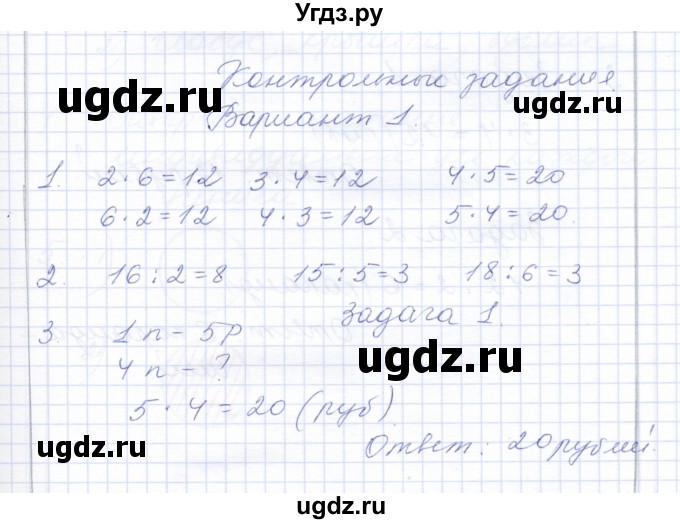 Угдз.ру
Контрольные задания.
ugdz.ru ugdz.ru
Вариант 1.
1. 2·6=12 3·4=12 4·5=20
6·2=12 4·3=12 5·4=20.
ugdz.ru ugdz.ru
2. 16:2=8 15:5=3 18:6=3
Задача 1.
3. 1 п - 5р
ugdz.ru
4 п - ?
5·4=20 (руб)
ugdz.ru ugdz.ru
Ответ: 20 рублей.
ugdz.ru